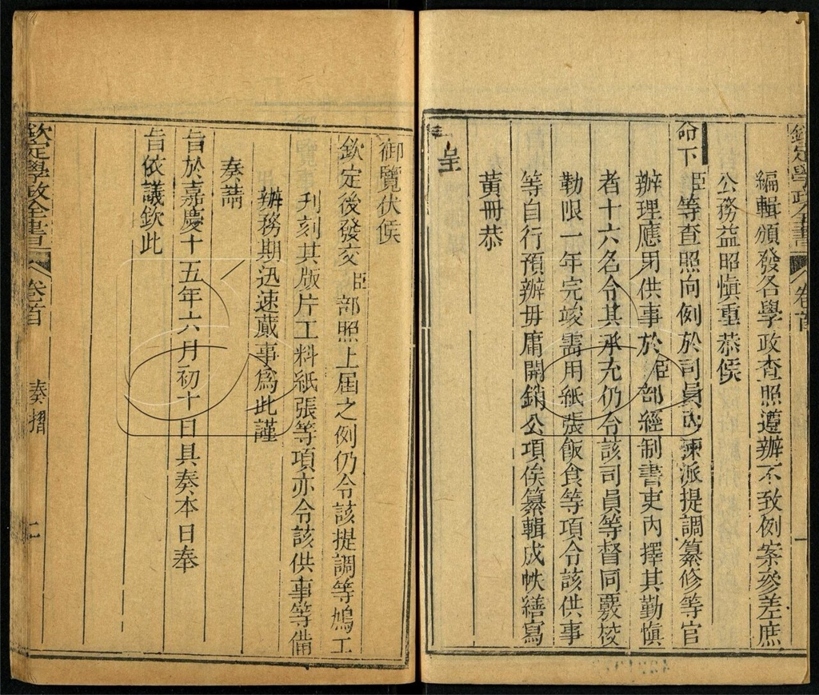 欽定學政全書 卷首
編輯頒發各學政查照遵辦不致例案參差庶
公務益昭愼重恭候
命下臣等查照向例於司員內揀派提調纂修等官
辦理應用供事於臣部經制書吏內擇其勤愼
者十六名令其承充仍令該司員等督同覈校
勒限一年完竣需用紙張飯食等項令該供事
等自行預辦毋庸開銷公項俟纂輯成帙繕寫
黃冊恭
呈
御覽伏候
欽定後發交臣部照上屆之例仍令該提調等鳩工
刋刻其版片工料紙張等項亦令該供事等備
辦務期迅速蕆事爲此謹
奏請
旨於嘉慶十五年六月初十日具奏本日奉
旨依議欽此
欽定學政全書 卷首 奏摺 二